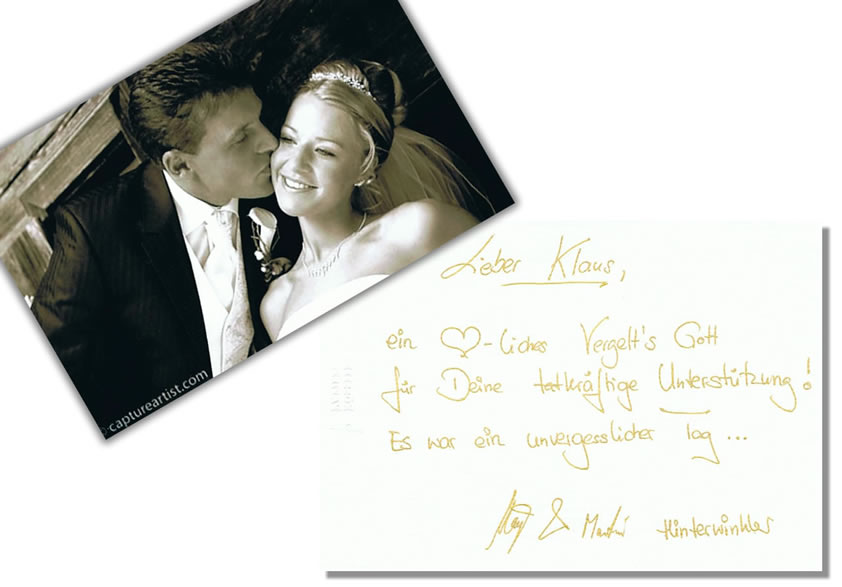 captureartist.com
Lieber Klaus,
ein ♡-liches Vergelt's Gott
für Deine tatkräftige Unterstützung!
Es war ein unvergesslicher Tag ...
& Hinterwinkler